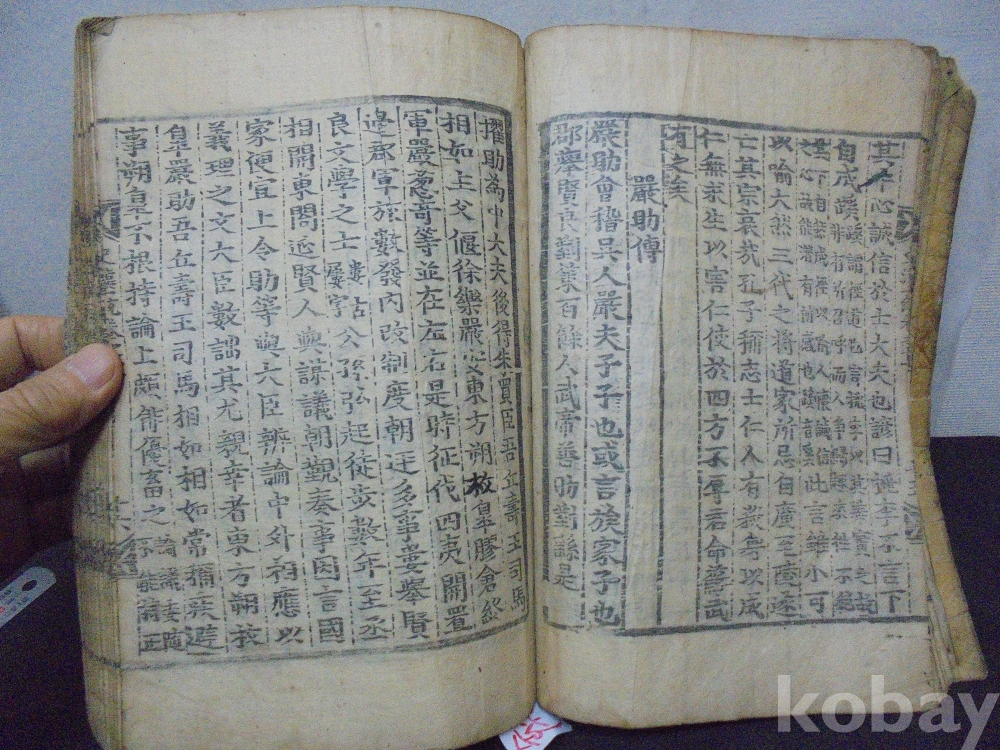 其中心誠信於士大夫也諺曰桃李不言下
自成蹊
此言雖小可
以喻大然三代之將道家所忌自廣至陵遂
亡其宗哀哉孔子稱志士仁人有殺身以成
仁無求生以害仁使於四方不辱君命蘇武
有之矣
嚴助傳
嚴助會稽吳人嚴夫子子也或言族家子也
郡擧賢良對策百餘人武帝善助對繇是
擢助為中大夫後得朱買臣吾丘壽王司馬
相如主父偃徐樂嚴安東方朔枚皐膠倉終
軍嚴葱奇等並在左右是時征代四夷開置
邊郡軍旅數發內改制度朝廷多事婁擧賢
良文學之士 公孫弘起徒步數年至丞
相開東閤延賢人與謀議朝覲奏事因言國
家便宜上令助等與大臣辨論中外相應以
義理之文大臣數詘其尤親幸者東方朔枚
皐嚴助吾丘壽王司馬相如相如常稱疾避
事朔皐不根持論上頗俳優畜之
kobay